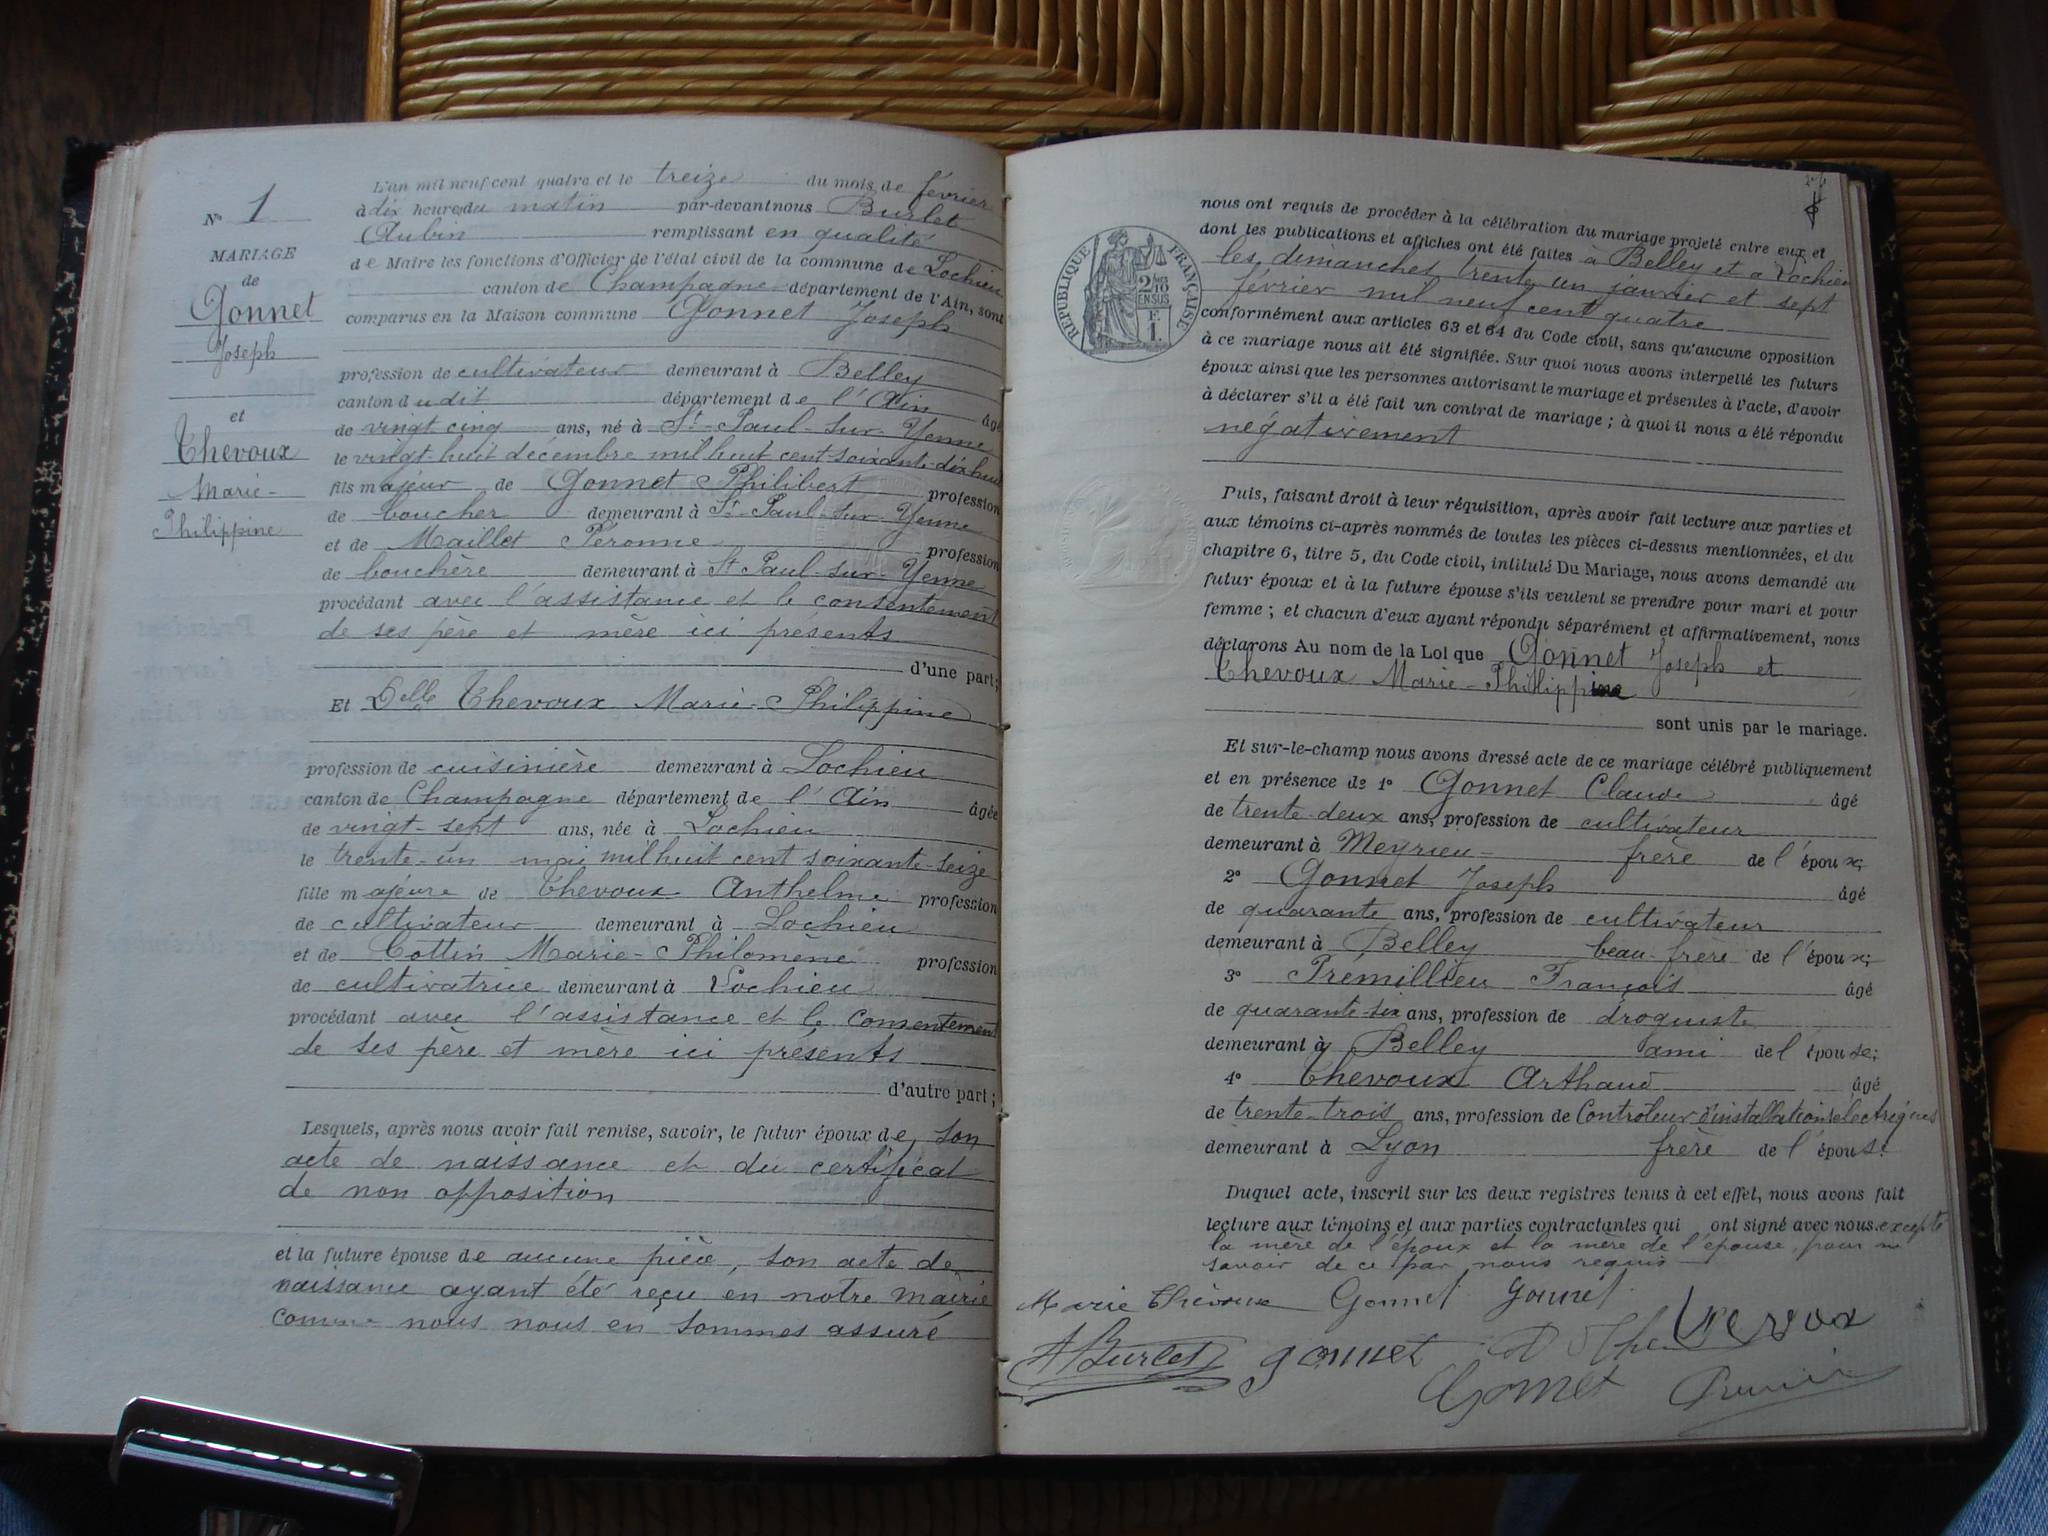 N° 1
MARIAGE
de
Gonnet
Joseph
et
Thevoux
Marie-
Philippine
L'an mil neuf cent quatre et le treize du mois de février
à dix heures du matin par-devant nous Burlet
Aubin remplissant en qualité
de Maire les fonctions d'Officier de l'état civil de la commune de Lochieu
canton de Champagne département de l'Ain, sont
comparus en la Maison commune Gonnet Joseph
profession de cultivateur demeurant à Belley
canton dudit département de l'Ain âgé
de vingt cinq ans, né à St-Paul-sur-Yenne
le vingt-huit décembre mil huit cent soixante-dix huit
fils majeur de Gonnet Philibert profession
de boucher demeurant à St-Paul-sur-Yenne
et de Maillet Péronne profession
de bouchère demeurant à St Paul-sur-Yenne
procédant avec l'assistance et le consentement
de ses père et mère ici présents
d'une part;
Et Delle Thevoux Marie-Philippine
profession de cuisinière demeurant à Lochieu
canton de Champagne département de l'Ain âgée
de vingt-sept ans, née à Lochieu
le trente-un mai mil huit cent soixante-seize
fille majeure de Thevoux Anthelme profession
de cultivateur demeurant à Lochieu
et de Cottin Marie-Philomène profession
de cultivatrice demeurant à Lochieu
procédant avec l'assistance et le consentement
de ses père et mère ici présents
d'autre part;
Lesquels, après nous avoir fait remise, savoir, le futur époux de son
acte de naissance et du certificat
de non opposition
et la future épouse de aucune pièce, son acte de
naissance ayant été reçu en notre mairie
comme nous nous en sommes assuré
RÉPUBLIQUE FRANÇAISE
2/10 EN SUS
F. 1.
nous ont requis de procéder à la célébration du mariage projeté entre eux et
dont les publications et affiches ont été faites à Belley et a Lochieu
les dimanches trente un janvier et sept
février mil neuf cent quatre
conformément aux articles 63 et 64 du Code civil, sans qu'aucune opposition
à ce mariage nous ait été signifiée. Sur quoi nous avons interpellé les futurs
époux ainsi que les personnes autorisant le mariage et présentes à l'acte, d'avoir
à déclarer s'il a été fait un contrat de mariage; à quoi il nous a été répondu
négativement
Puis, faisant droit à leur réquisition, après avoir fait lecture aux parties et
aux témoins ci-après nommés de toutes les pièces ci-dessus mentionnées, et du
chapitre 6, titre 5, du Code civil, intitulé Du Mariage, nous avons demandé au
futur époux et à la future épouse s'ils veulent se prendre pour mari et pour
femme; et chacun d'eux ayant répondu séparément et affirmativement, nous
déclarons Au nom de la Loi que Gonnet Joseph et
Thevoux Marie-Philippine
sont unis par le mariage.
Et sur-le-champ nous avons dressé acte de ce mariage célébré publiquement
et en présence de 1° Gonnet Claude âgé
de trente-deux ans, profession de cultivateur
demeurant à Meyrieu- frère de l'époux;
2° Gonnet Joseph âgé
de quarante ans, profession de cultivateur
demeurant à Belley beau-frère de l'époux;
3° Prémillieu François âgé
de quarante-six ans, profession de droguiste
demeurant à Belley ami de l'épouse;
4° Thevoux Arthaud âgé
de trente-trois ans, profession de Controleur d'installations electriques
demeurant à Lyon frère de l'épouse
Duquel acte, inscrit sur les deux registres tenus à cet effet, nous avons fait
lecture aux témoins et aux parties contractantes qui ont signé avec nous excepté
la mère de l'époux et la mère de l'épouse, pour ne
savoir de ce par nous requis
Marie Thévoux Gonnet Gonnet
ABurlet gonnet Thevoux
Gonnet